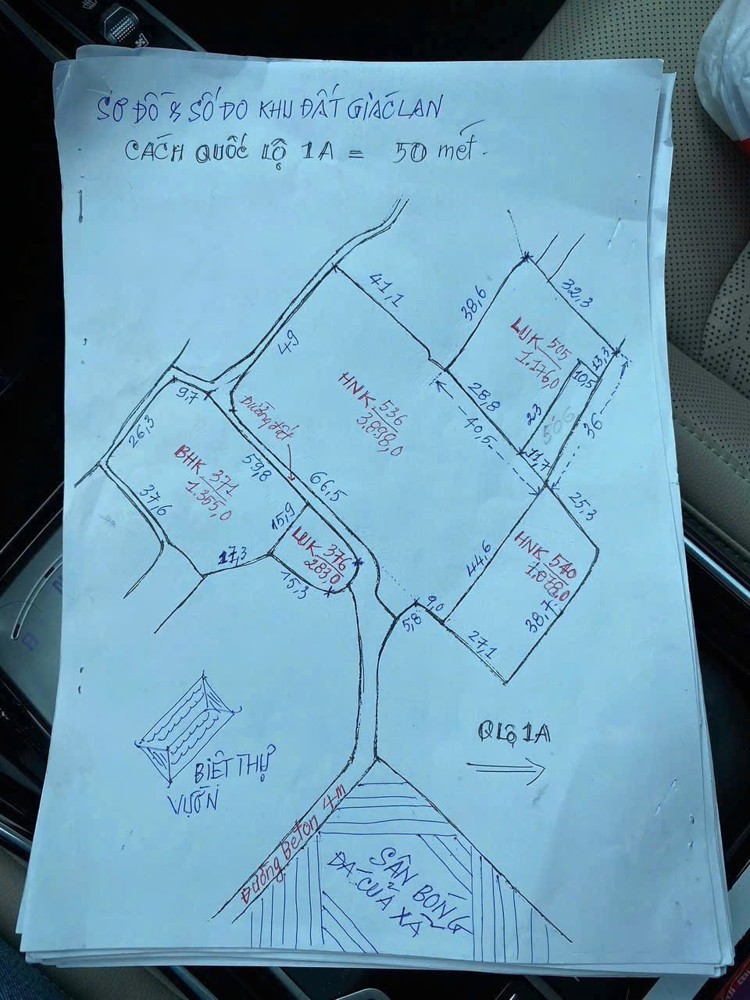 SƠ ĐỒ & SỐ ĐO KHU ĐẤT GIÁC LAN
CÁCH QUỐC LỘ 1A = 50 mét.
41,1
38,6
32,3
49
LUK 505
1.176,0
13,3
10,5
HNK 536
3.898,0
28,8
23
566
36
9,7
Đường đất
40,5
11,7
26,3
BHK 371
1.355,0
59,8
66,5
25,3
37,6
15,9
LUK 376
283,0
44,6
HNK 540
1.078,0
17,3
15,3
9,0
5,8
38,7
27,1
QLộ 1A
BIỆT THỰ
VƯỜN
Đường Beton 4m
SÂN BÓNG
ĐÁ CỦA XÃ